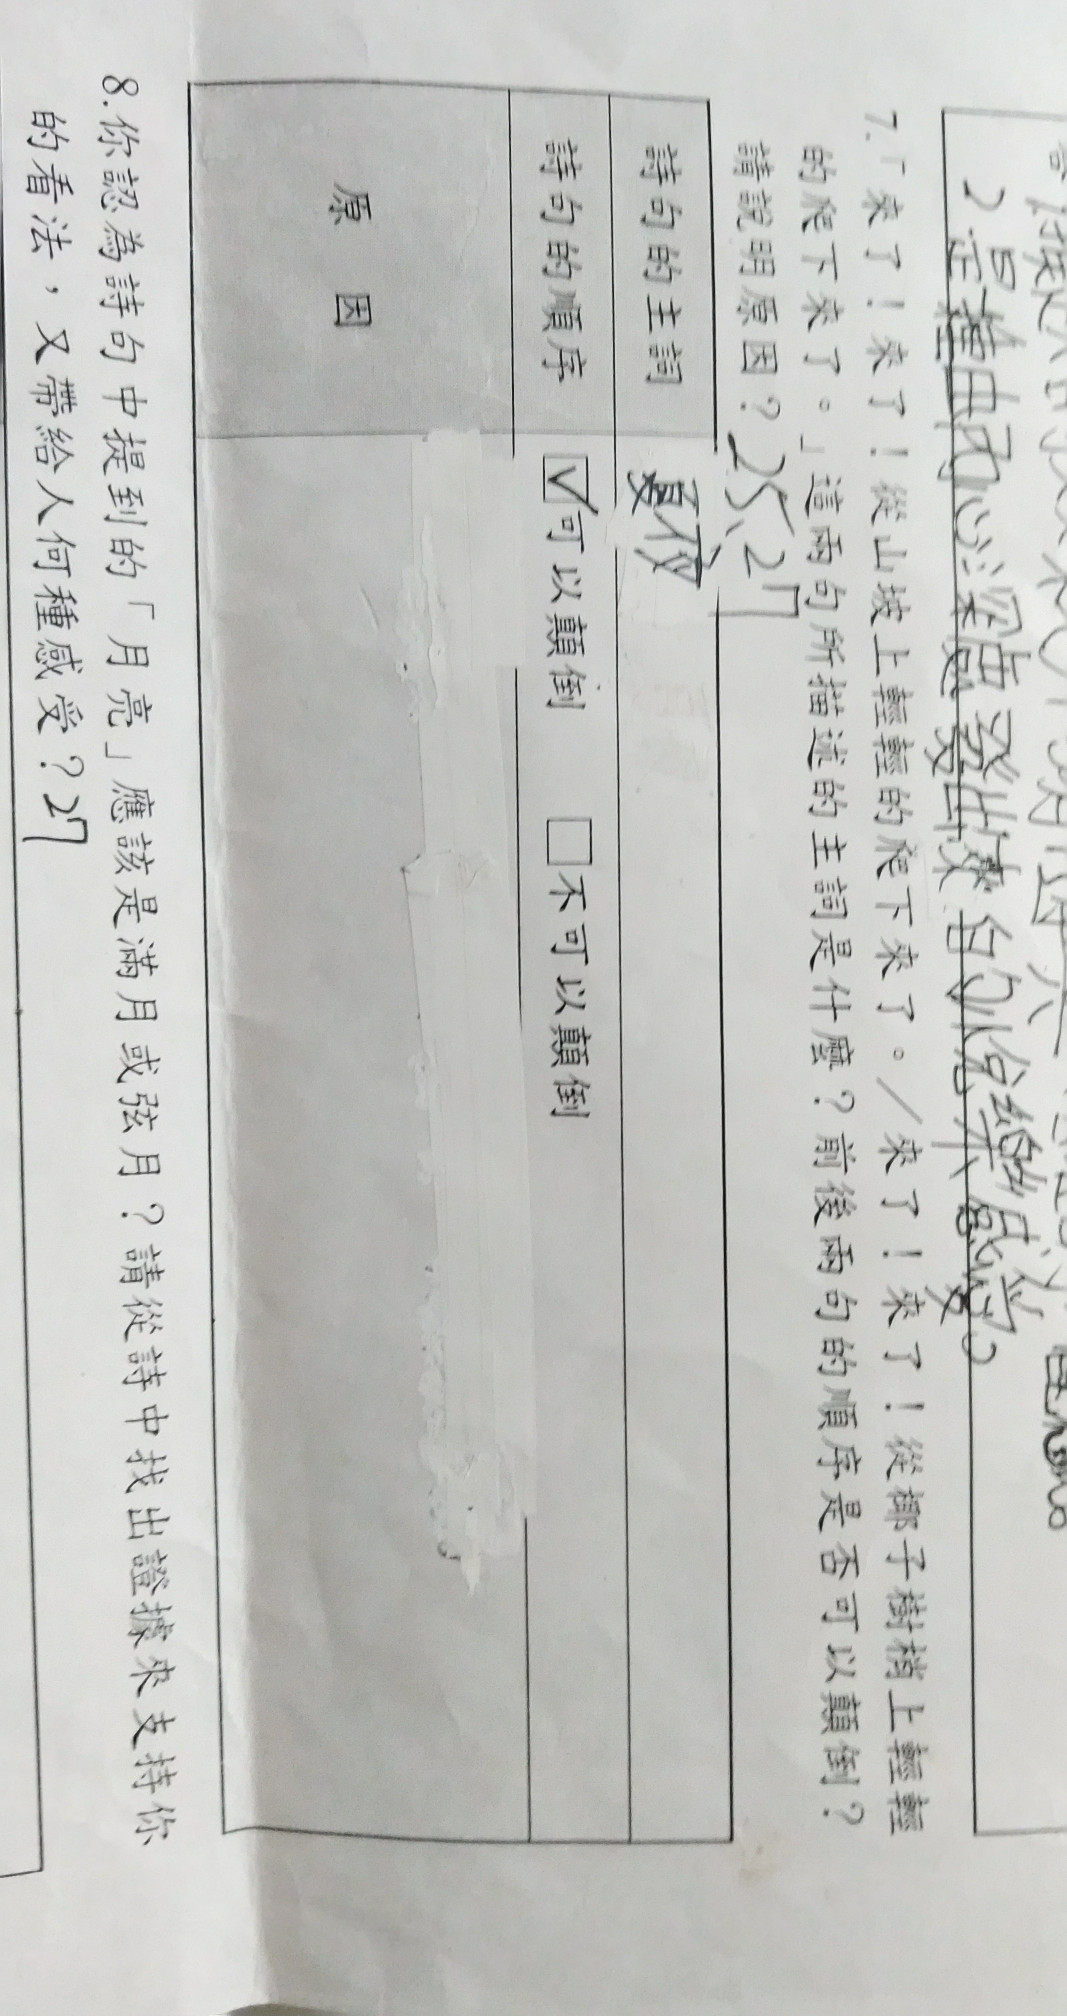 是種由內心深處發出
感受。
7.「來了！來了！從山坡上輕輕的爬下來了。／來了！來了！從椰子樹梢上輕輕
的爬下來了。」這兩句所描述的主詞是什麼？前後兩句的順序是否可以顛倒？
請說明原因？25、27
詩句的主詞 夏夜
詩句的順序 ☑可以顛倒 □不可以顛倒
原因
8.你認為詩句中提到的「月亮」應該是滿月或弦月？請從詩中找出證據來支持你
的看法，又帶給人何種感受？27